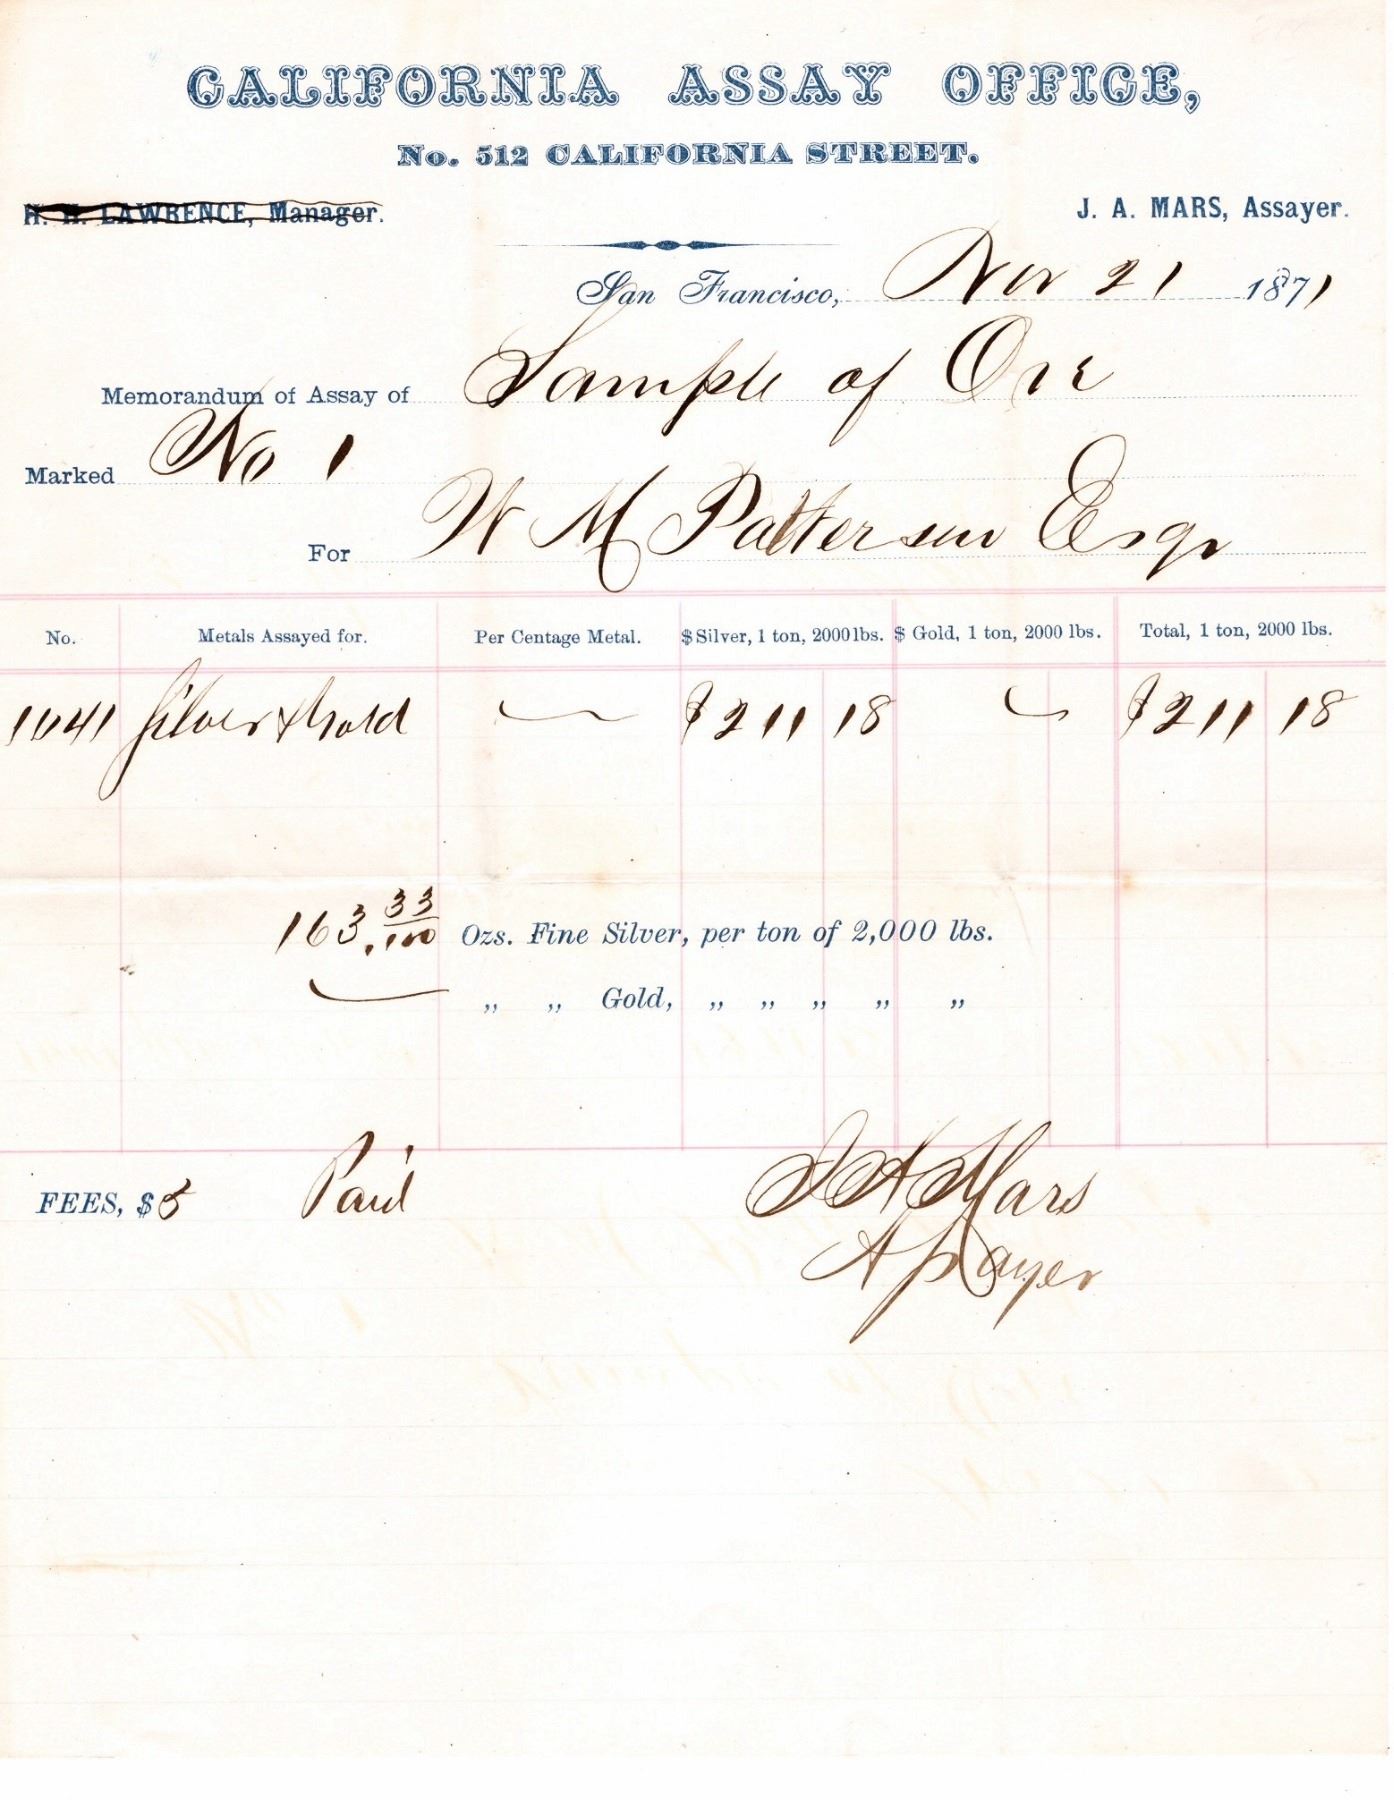 CALIFORNIA ASSAY OFFICE,
No. 512 CALIFORNIA STREET.
H. H. LAWRENCE, Manager. J. A. MARS, Assayer.
San Francisco, Nov 21 1871
Memorandum of Assay of Sample of Ore
Marked No 1
For W M Patterson Esqr
No. Metals Assayed for. Per Centage Metal. $ Silver, 1 ton, 2000 lbs. $ Gold, 1 ton, 2000 lbs. Total, 1 ton, 2000 lbs.
1041 Silver & Gold — $211 18 — $211 18
163.33/100 Ozs. Fine Silver, per ton of 2,000 lbs.
— „ „ Gold, „ „ „ „ „
FEES, $5 Paid J A Mars
Assayer